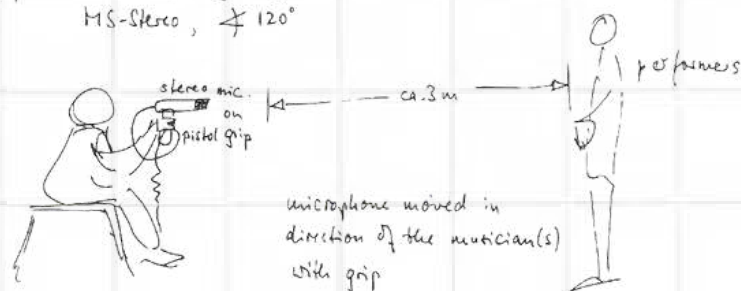 MS-Stereo, ∢ 120°
stereo mic.
on
pistol grip
ca. 3 m
performers
microphone moved in
direction of the musician(s)
with grip